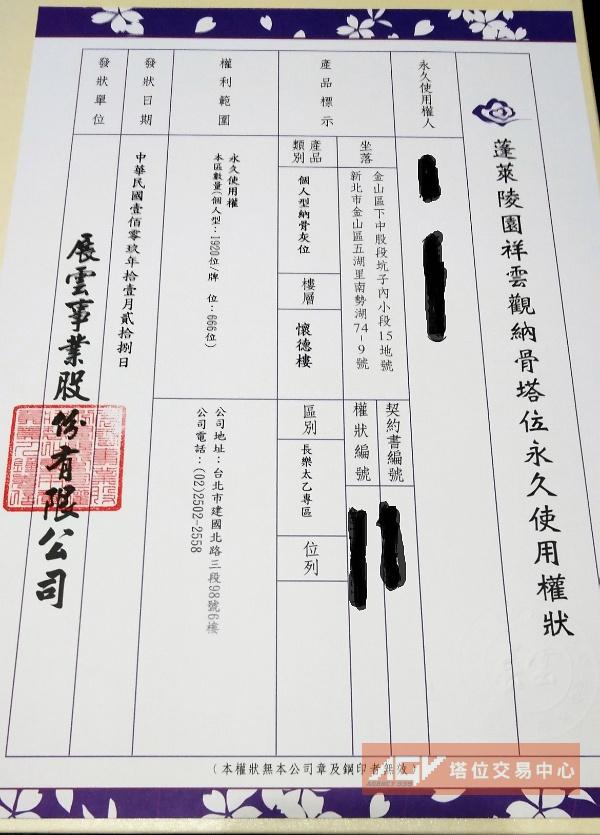 蓬萊陵園祥雲觀納骨塔位永久使用權狀
永久使用權人
產品標示
坐落
金山區下中股段坑子內小段15地號
新北市金山區五湖里南勢湖74-9號
契約書編號
權狀編號
產品類別
個人型納骨灰位
樓層
懷德樓
區別
長樂太乙專區
位列
權利範圍
永久使用權
本區數量(個人型:1920位/牌 位:666位)
公司地址:台北市建國北路三段98號6樓
公司電話:(02)2502-2558
發狀日期
中華民國壹佰零玖年拾壹月貳拾捌日
發狀單位
展雲事業股份有限公司
(本權狀無本公司章及鋼印者無效)
AGV 塔位交易中心